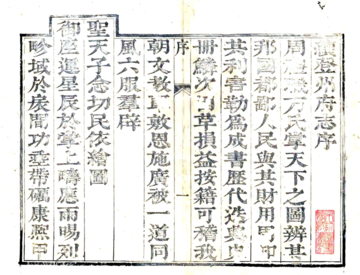 續登州府志序
周禮職方氏掌天下之圖辨其
邦國都鄙人民與其財用
其利害勒為成書歷代迭興史
冊鱗次 草損益按籍可稽我
朝文教 敷恩施廣被一道同
風六服羣辟
序
一
聖天子念切民依繪圖
御座邇星辰於掌上疇應雨暘列
畛域於 間功垂帶礪康熙甲